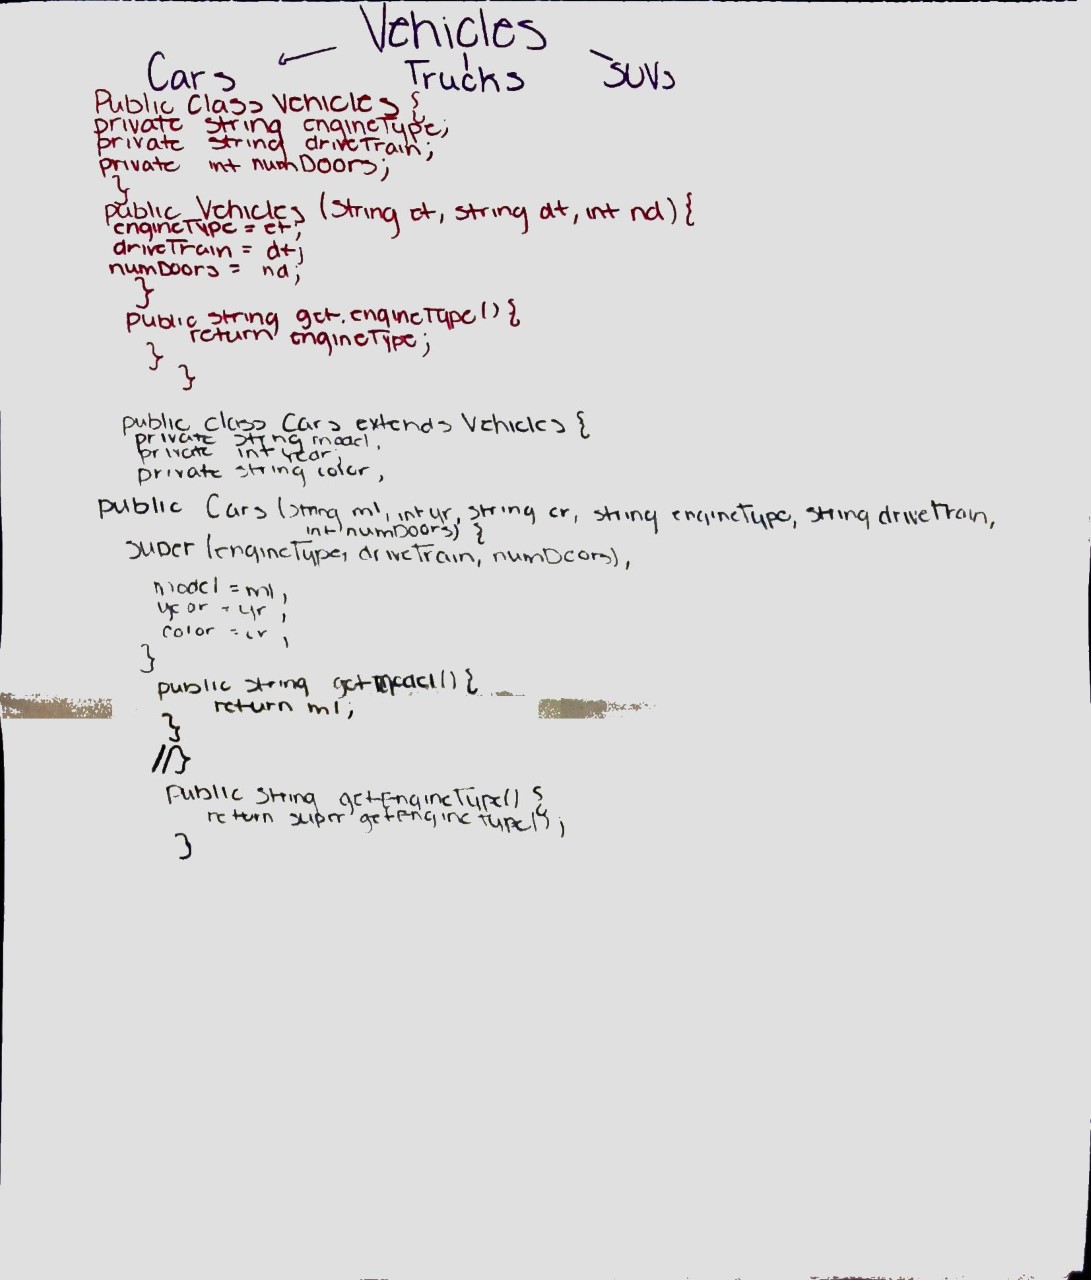 Vehicles
Cars Trucks SUVs
Public Class Vehicles {
private string engineType;
private string driveTrain;
private int numDoors;
}
public Vehicles (String et, string dt, int nd) {
engineType = et;
driveTrain = dt;
numDoors = nd;
}
public string get.engineType() {
return engineType;
}
}
public class Cars extends Vehicles {
private string model,
private int year;
private string color,
public Cars (string ml, int yr, string cr, string engineType, string driveTrain,
int numDoors) {
super (engineType, driveTrain, numDoors),
model = ml,
year = yr ,
color = cr ,
}
public string getModel() {
return ml;
}
//}
Public String getEngineType() {
return super getEngineType();
}